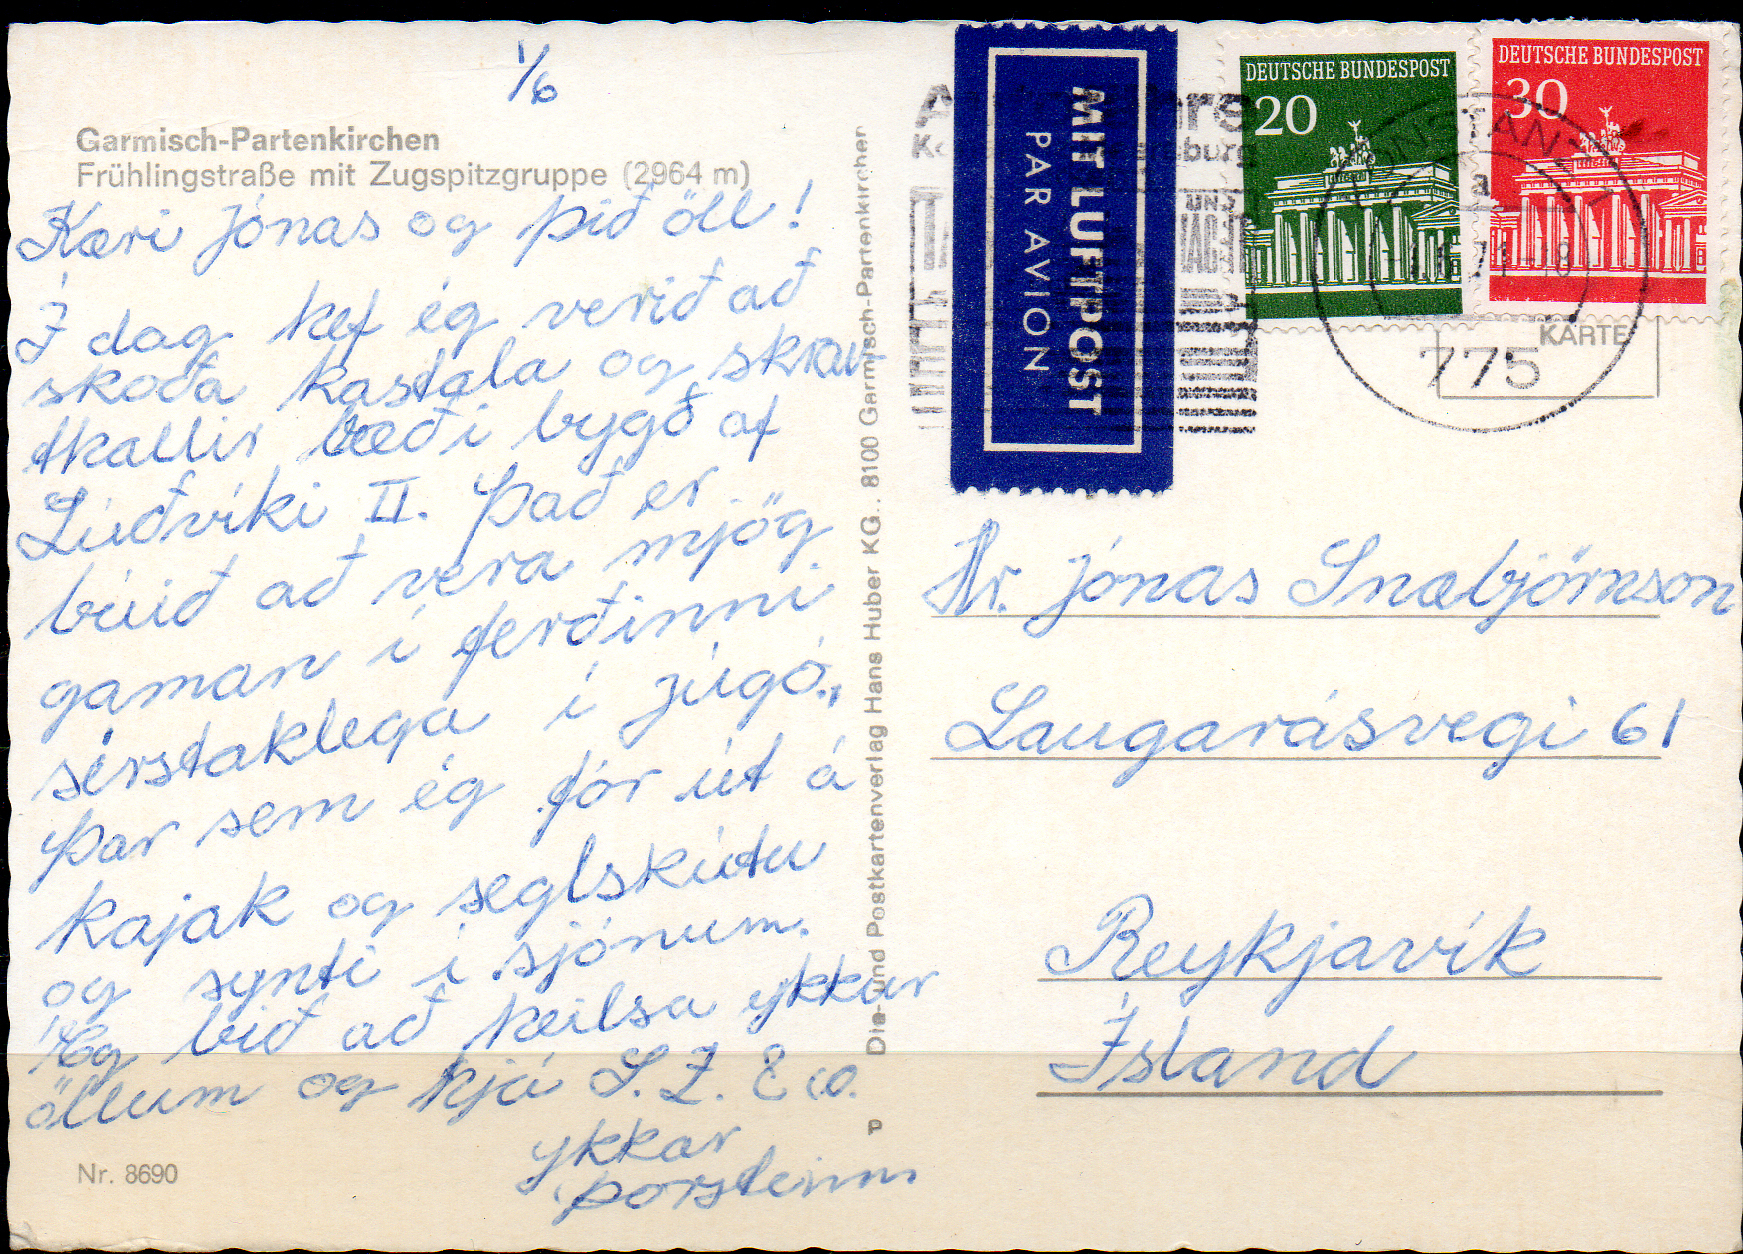 1/6
Garmisch-Partenkirchen
Frühlingstraße mit Zugspitzgruppe (2964 m)
Kæri Jónas og þið öll!
Í dag hef ég verið að
skoða kastala og skrau-
tkallir bæði bygð af
Lúðvíki II. Það er
búið að vera mjög
gaman í ferðinni
sérstaklega í júgó.,
þar sem ég fór út á
kajak og seglskútu
og synti í sjónum.
Ég bið að heilsa ykkur
öllum og hjá S. Z. & co.
ykkar
þorsteinn
Nr. 8690
Dia- und Postkartenverlag Hans Huber KG., 8100 Garmisch-Partenkirchen
P
MIT LUFTPOST
PAR AVION
DEUTSCHE BUNDESPOST
20
DEUTSCHE BUNDESPOST
30
KONSTANZ 1
a
71-18
775
KARTE
UNS
Hr. Jónas Snæbjörnsson
Laugarásvegi 61
Reykjavík
Ísland